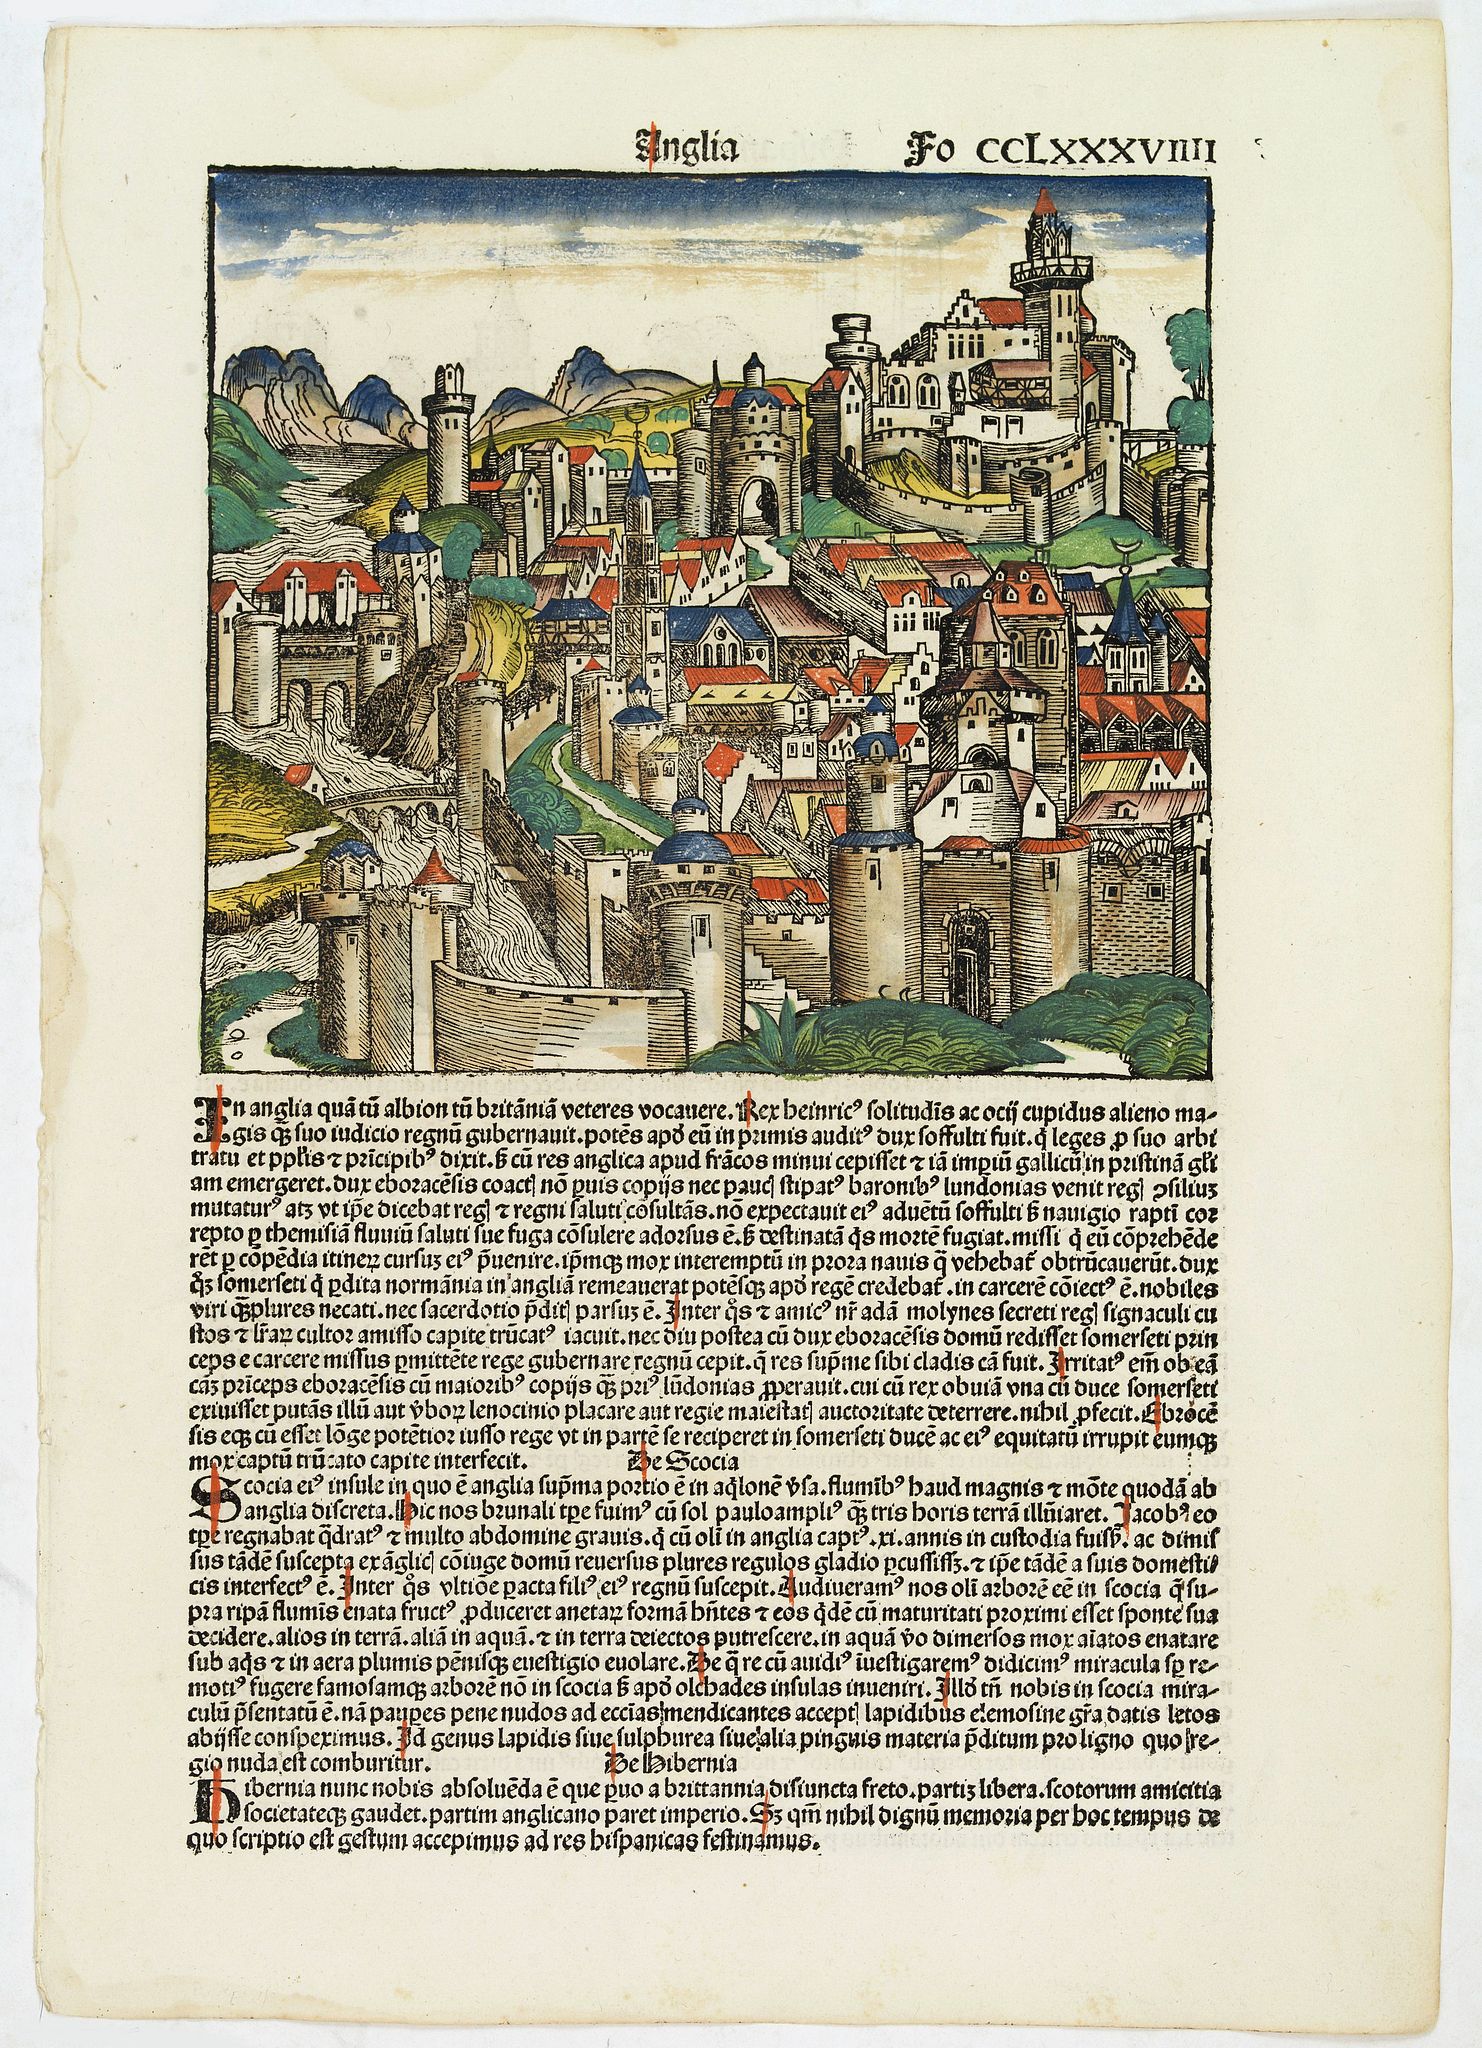 Anglia Fo CCLXXXVIIII
In anglia quā tū albion tū britāniā veteres vocauere. Rex heinricꝰ solitudīs ac ocij cupidus alieno ma-
gis q̄ȝ suo iudicio regnū gubernauit. potēs apđ eū in primis auditꝰ dux soffulti fuit. q̇ leges ꝓ suo arbi
tratu et pplīs ⁊ prīcipibꝰ dixit. ß cū res anglica apud frācos minui cepisset ⁊ iā imp̄iū gallicū in pristinā gl̄i
am emergeret. dux eboracēsis coactꝭ nō ꝑuis copijs nec paucꝭ stipatꝰ baronibꝰ lundonias venit regꝭ ↄsiliuȝ
mutaturꝰ atȝ vt ip̄e dicebat regꝭ ⁊ regni saluti cōsultās. nō expectauit eiꝰ aduētū soffulti ß nauigio raptī cor
repto ꝑ themisiā fluuiū saluti sue fuga cōsulere adorsus ē. ß destinatā q̇s mortē fugiat. missi q̇ eū cōprehēde
rēt ꝑ cōpēdia itineꝝ cursuȝ eiꝰ p̄uenire. ip̄mqȝ mox interemptū in prora nauis q̄ vehebat̄ obtrūcauerūt. dux
q̇ȝ somerseti q̇ ꝑdita normānia in angliā remeauerat potēsqȝ apđ regē credebat̄. in carcerē cōiectꝰ ē. nobiles
viri q̄ȝplures necati. nec sacerdotio p̄ditꝭ parsuȝ ē. Inter q̊s ⁊ amicꝰ nr̄ adā molynes secreti regꝭ signaculi cu
stos ⁊ lr̄aꝝ cultor amisso capite trūcatꝰ iacuit. nec diu postea cū dux eboracēsis domū redisset somerseti prin
ceps e carcere missus ꝑmittēte rege gubernare regnū cepit. q̄ res sup̄me sibi cladis cā fuit. Irritatꝰ em̄ ob eā
cāȝ prīceps eboracēsis cū maioribꝰ copijs q̄ȝ priꝰ lūdonias ꝓperauit. cui cū rex obuiā vna cū duce somerseti
exiuisset putās illū aut v̄boꝝ lenocinio placare aut regie maiestatꝭ auctoritate deterrere. nihil ꝓfecit. Ebrocē
sis eqȝ cū esset lōge potētior iusso rege vt in partē se reciperet in somerseti ducē ac eiꝰ equitatū irrupit eumqȝ
mox captū trūcato capite interfecit. De Scocia
Scocia eiꝰ insule in quo ē anglia sup̄ma portio ē in aq̇lonē v̄sa. flumībꝰ haud magnis ⁊ mōte quodā ab
anglia discreta. Hic nos brunali tp̄e fuimꝰ cū sol pauloampliꝰ q̄ȝ tris horis terrā illūiaret. Jacobꝰ eo
tp̄e regnabat q̄dratꝰ ⁊ multo abdomine grauis. q̇ cū olī in anglia captꝰ .xi. annis in custodia fuisȝ. ac dimis
sus tādē suscepta ex āglicꝭ cōiuge domū reuersus plures regulos gladio ꝑcussissȝ. ⁊ ip̄e tādē a suis domesti
cis interfectꝰ ē. Inter q̊s vltiōe ꝑacta filiꝰ eiꝰ regnū suscepit. Audiueramꝰ nos olī arborē eē in scocia q̄ su-
pra ripā flumīs enata fructꝰ ꝓduceret anetaꝝ formā hn̄tes ⁊ eos q̇dē cū maturitati proximi esset sponte sua
decidere. alios in terrā. aliā in aquā. ⁊ in terra deiectos putrescere. in aquā v̊o dimersos mox aīatos enatare
sub aq̇s ⁊ in aera plumis pēnisqȝ euestigio euolare. De q̄ re cū auidiꝰ īuestigaremꝰ didicimꝰ miracula sp̄ re-
motiꝰ fugere famosamqȝ arborē nō in scocia ß apđ olchades insulas inueniri. Illđ tn̄ nobis in scocia mira-
culū p̄sentatū ē. nā paupes pene nudos ad eccīas mendicantes acceptꝭ lapidibus elemosine gr̄a datis letos
abijsse conspeximus. Id genus lapidis siue sulphurea siue alia pinguis materia p̄ditum pro ligno quo re-
gio nuda est comburitur. De Hibernia
Hibernia nunc nobis absoluēda ē que ꝑuo a brittannia disiuncta freto. partiȝ libera. scotorum amicitia
societateqȝ gaudet. partim anglicano paret imperio. Sȝ qm̄ nihil dignū memoria per hoc tempus de
quo scriptio est gestum accepimus ad res hispanicas festinamus.